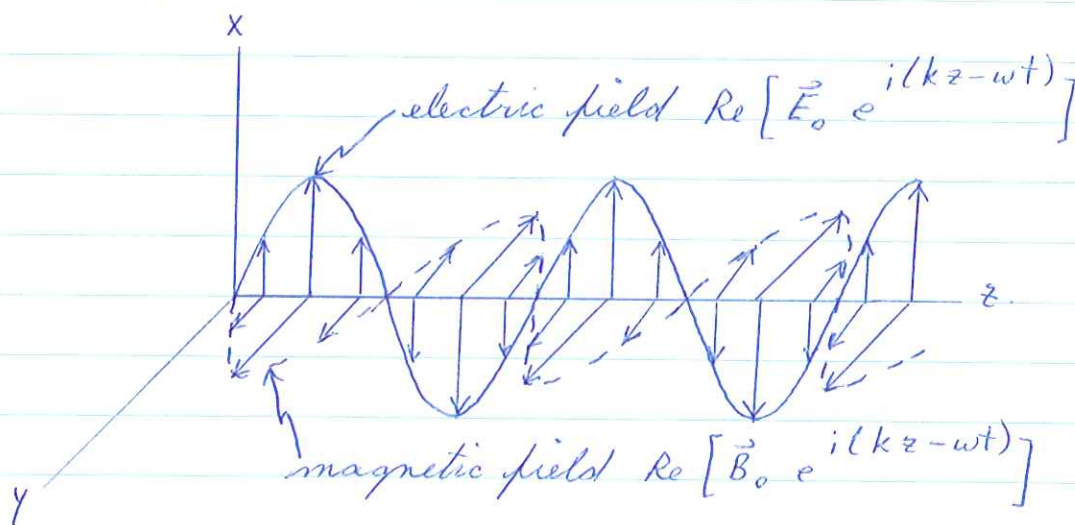 X
electric field Re [ E⃗₀ e^{i(kz-ωt)} ]
z
magnetic field Re [ B⃗₀ e^{i(kz-ωt)} ]
Y